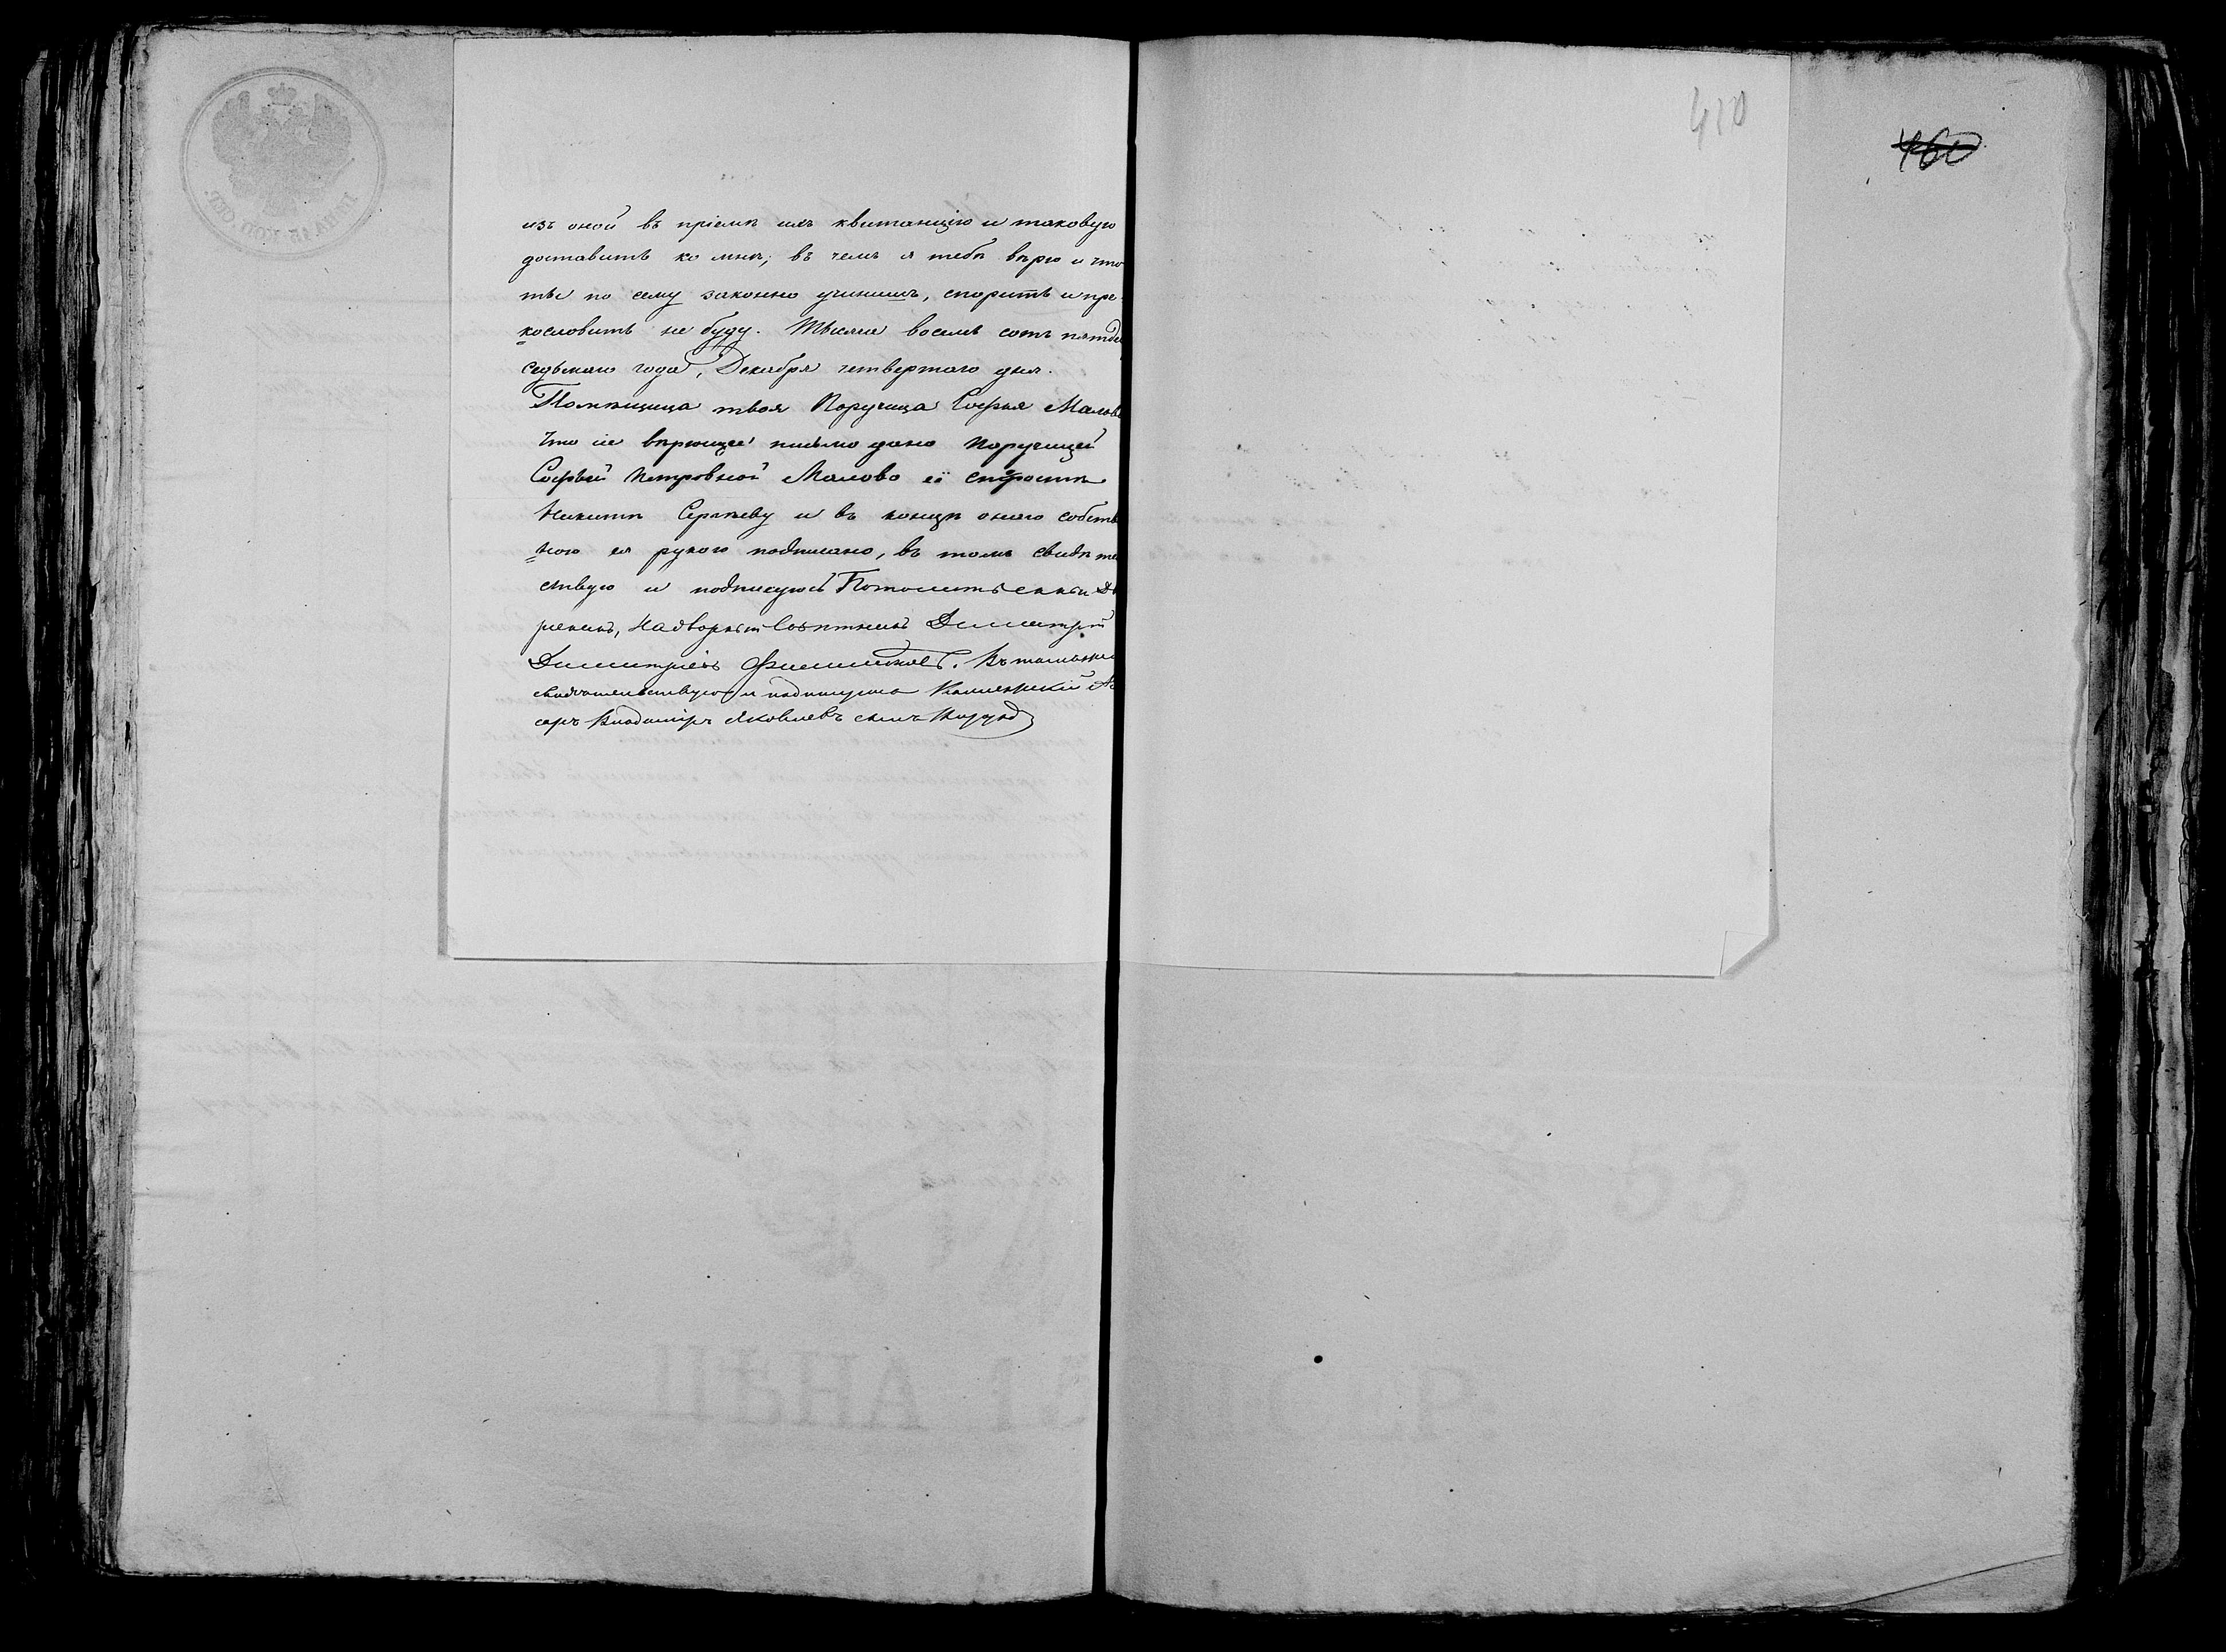 изъ оной въ пріемѣ ихъ квитанцію и таковую
доставить ко мнѣ; въ чемъ я тебѣ вѣрю и что
ты по сему законно учинишь, спорить и пре
кословить не буду. Тысяча восемь сотъ пятде
седьмаго года, Декабря четвертаго дня.
Помѣщица твоя Поручица Софья Малов
Что сіе вѣрющее письмо дано Поручицей
Софьей Петровной Малово её старостѣ
Никитѣ Сергѣеву и въ концѣ онаго собств
ною ея рукою подписано, въ томъ свидѣте
ствую и подписуюсь Потомственный Дв
рянинъ, Надворный Совѣтникъ Димитрій
Димитріевъ Филимоновъ. Въ томъ же
свидѣтельствую и подписуюсь Коллежскій Ас
соръ Владиміръ Яковлевъ сынъ
410
460
ЦѢНА 15 КОП. СЕР.
ЦѢНА